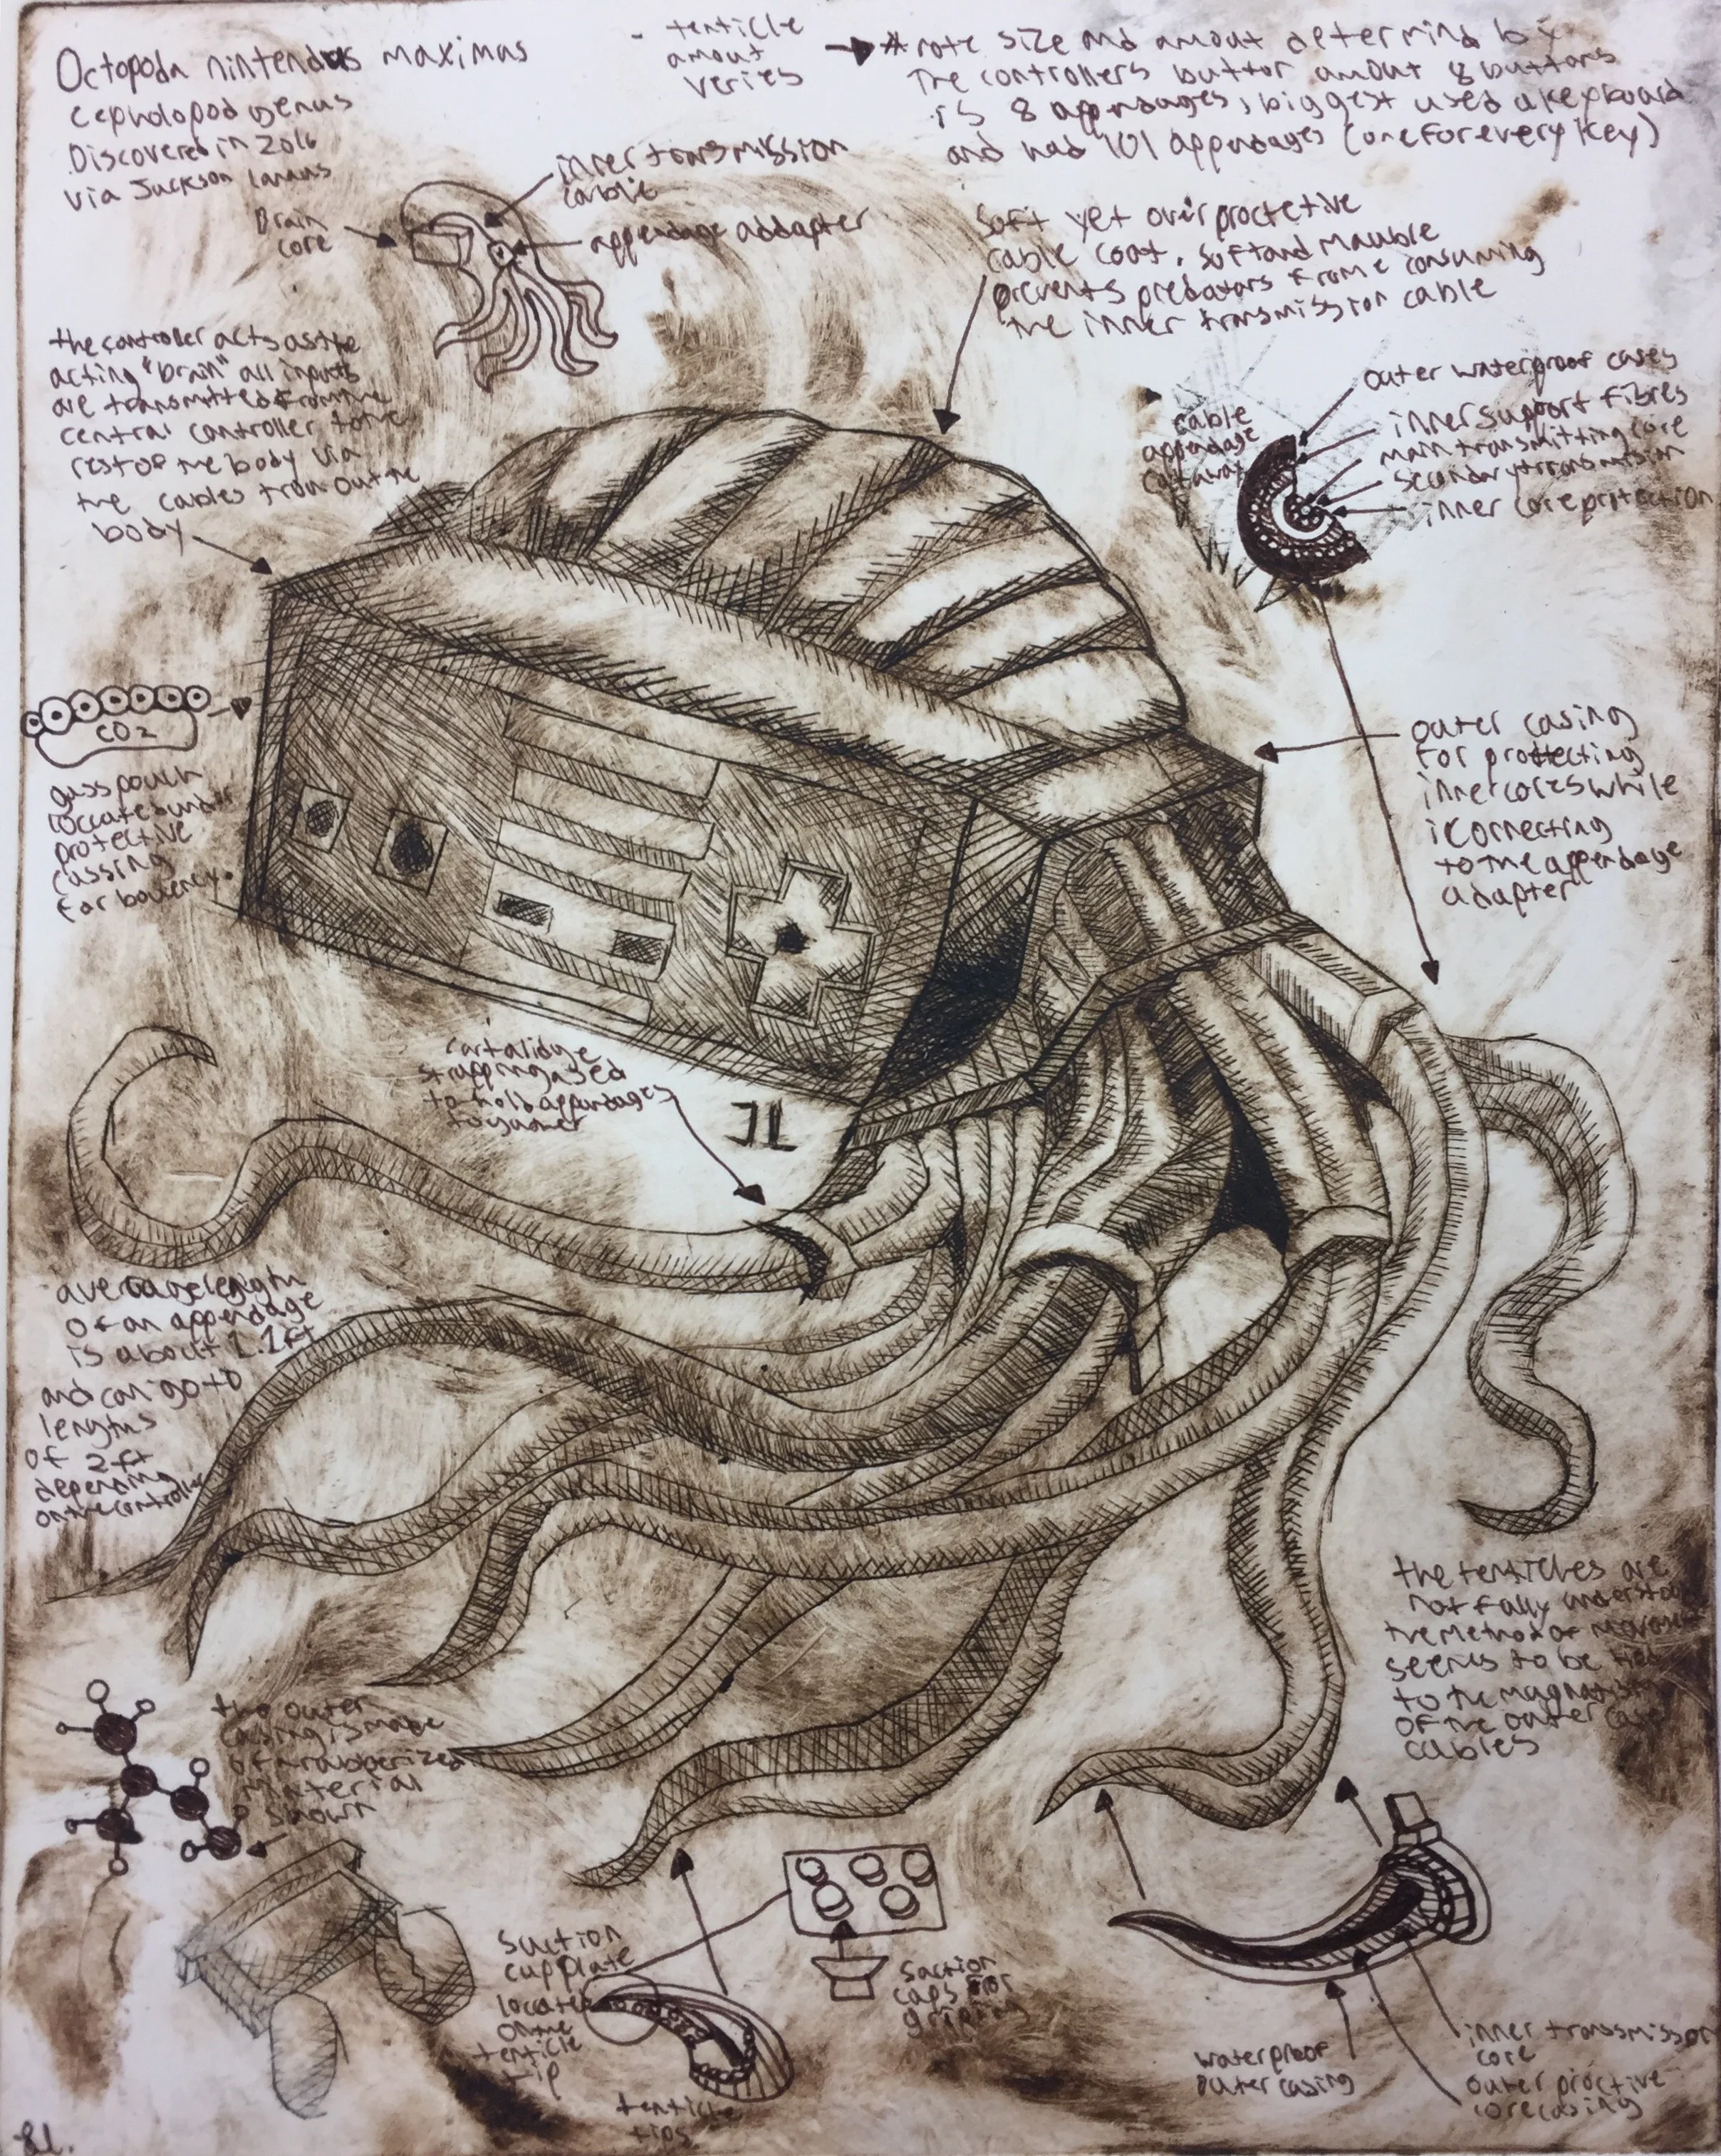 Octopoda nintendus maximas
cepholopod genus
Discovered in 2016
via Jackson
- tenticle
amout
veries
*note size and amout determind by
the controllers button amout 8 buttons
is 8 appendages, biggest used a keyboard
and had 101 appendages (one for every key)
inner transmission
cable
Brain
core
appendage addapter
soft yet over proctetive
cable coat. soft and
prevents predators from consuming
the inner transmission cable
the controller acts as the
acting "brain" all inputs
are transmitted from the
central controller to the
rest of the body via
the cables from out the
body
cable
appendage
cutaway
outer waterproof cases
inner support fibres
main transmitting core
secondary transmission
inner core protection
CO2
gass pouch
loccate under
protective
cassing
for
outer casing
for protecting
inner cores while
connecting
to the appendage
adapter
cartalidge
strapping used
to hold appendages
JL
average length
of an appendage
is about 1.1ft
and can go to
lengths
of 2ft
depending
on the controller
the tenticles are
not fully
the method of
seems to be
to the
of the outer case
cables
the outer
casing is made
of a rubberized
material
shown
suction
cup plate
located
on the
tenticle
tip
suction
cups for
griping
tenticle
tips
waterproof
outer casing
inner transsmisson
core
outer proctive
core casing